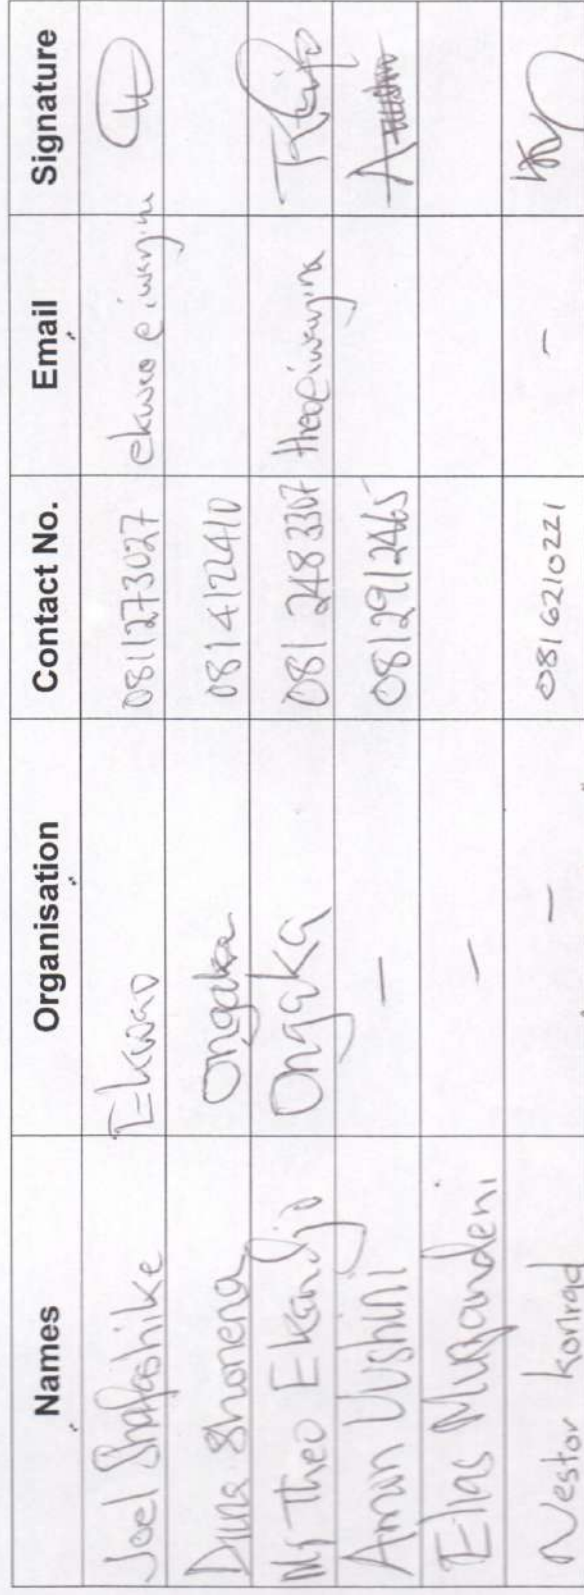 Names Organisation Contact No. Email Signature
Joel Shafashike Ekwao 0811273027 ekwao@iway.na
Dina Shonena Ongaka 0814122410
Mr Theo Ekandjo Ongaka 081 248 3307 theo@iway.na
Amon Uushini - 0812912465
Elias Mupandeni -
Nestor Konrad - 0816210221 -